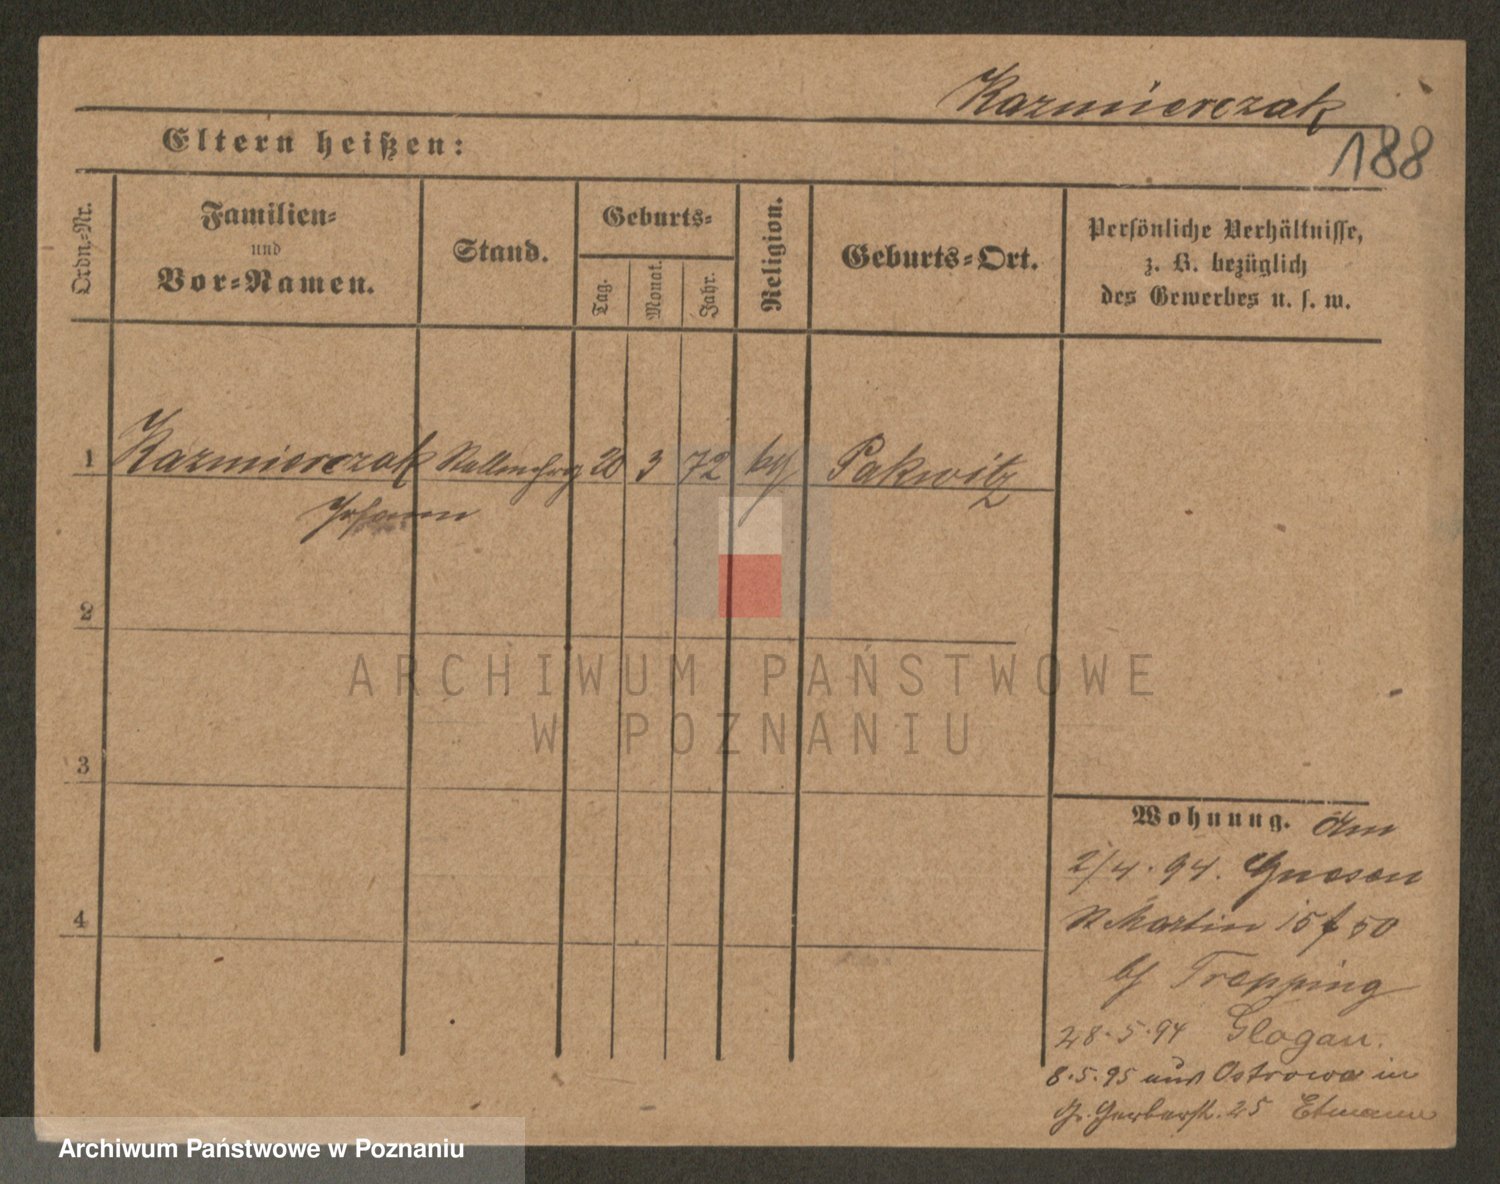 Kazmierczak
188
Eltern heißen:
Ordn.-Nr.
Familien-
und
Vor-Namen.
Stand.
Geburts-
Tag.
Monat.
Jahr.
Religion.
Geburts-Ort.
Persönliche Verhältnisse,
z. B. bezüglich
des Gewerbes u. s. w.
1 Kazmierczak 20 3 72 Pakwitz
Johann
2
ARCHIWUM PAŃSTWOWE
W POZNANIU
3
4
Wohnung. Am
2/4. 94. Gnesen
St Martin 15 f 50
bf Trepping
28.5.94 Glogau.
8.5.95 aus Ostrowo in
Gr. Gerberstr. 25 Etmann
Archiwum Państwowe w Poznaniu